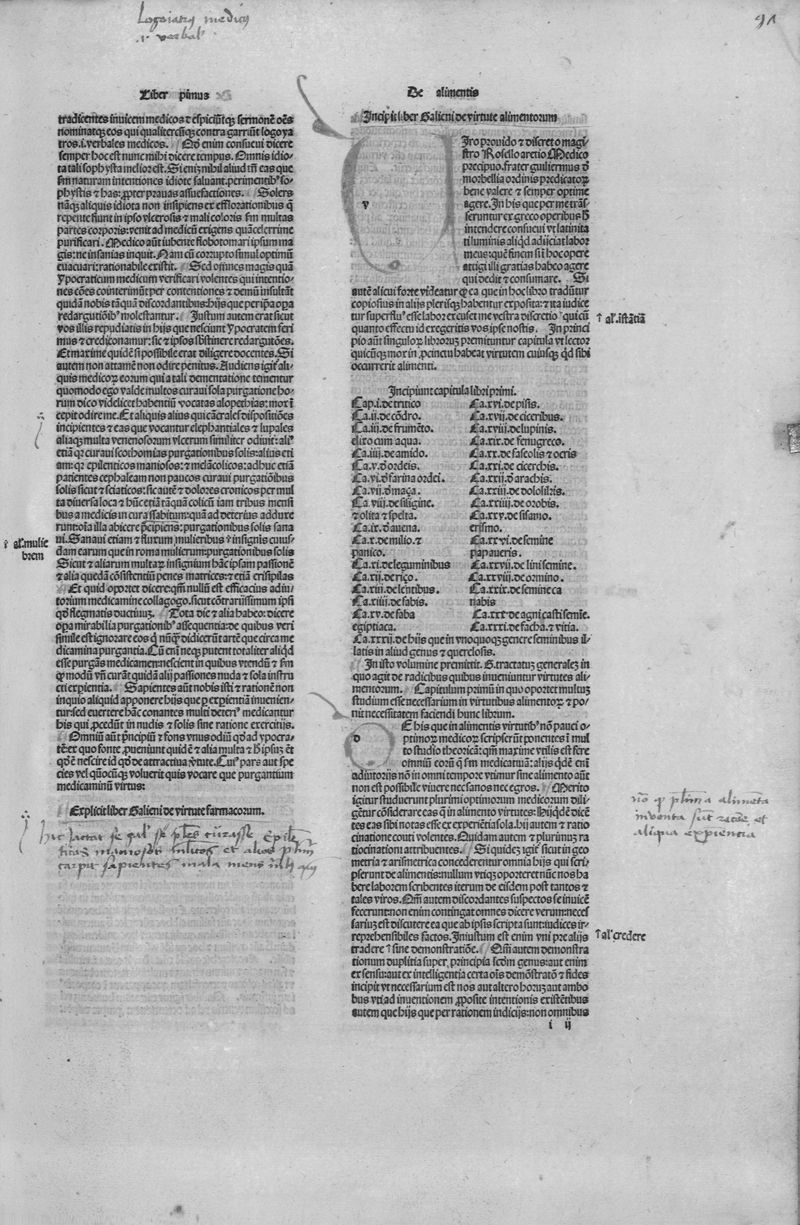 Logoiatrus medicus
.i. verbal'
91
Liber primus
De alimentis
tradicentes inuicem medicos ⁊ espiciūtq̄ʒ sermonē oēs
nominatq̄ʒ eos qui qualitercūq̄ʒ contra garriūt logoya
tros.i.verbales medicos. enim consueui dicere
semper hoc est nunc mihi dicere tempus. Omnis idio-
ta tali sophysta melior est. Si enĩ nihil aliud tñ eas que
sm naturam intentiones idiote saluant. perimentibꝰ so-
phystis ⁊ has: propter prauas assuefactiones. Solers
nāq̄ʒ aliquis idiota non insipiens ex efflorationibus q̄
repente fiunt in ipso vlcerosis ⁊ mali coloris sm multas
partes corporis: venit ad medicū exigens quā celerrime
purificari. Medico aūt iubente flobotomari ipsum ma
gis: ne insanias inquit. Nam cū corrupto simul optimū
euacuari: rationabile existit. Sed omnes magis quā
ypocraticum medicum verificari volentes qui intentio-
nes eōes cōuenerimꝰ per contentiones ⁊ demū insultāt
quidā nobis tāquā discordantibus: hijs que peripa opa
redargutiōibꝰ molestantur. Justum autem erat sicut
vos illis repudiatis in hijs que nesciunt ypocratem seri
mus ⁊ credicionamur: sic ⁊ ipsos obstinere redargutōes.
Et maxime quidē si possibile erat diligere docentes. Si
autem non attamē non odire penitus. Audiens igit̄ ali-
quis medicorꝫ eorum qui a tali dementatione tenentur
quomodo ego valde multos curaui sola purgatione ho-
rum dico videlicet habentiū vocatas alopethias: mor̄
cepit odire me. Et aliquis alius qui cācrales dispositiōes
incipientes ⁊ eas que vocantur elephantiales ⁊ lupales
aliaq̄ʒ multa venenosorum vlcerum similiter odiuit: aliꝰ
etiā q̄ curaui scothomias purgationibus solis: alius eti
am: q̄ epilenticos maniosos: ⁊ melācolicos: adhuc etiā
patientes cephaleam non paucos curaui purgatiōibus
solis sicut ⁊ sciaticos: sic autē ⁊ dolores cronicos per mul
ta diuersa loca ⁊ hūc etiā tāquā colicū iam tribus mensi
bus a medicis in cura assabitum: quā ad deterius addure
runt: oīa illa abicere p̄cipiens: purgationibus solis sana
ui. Sanaui etiam ⁊ fluxum mulieribus insignis cuius-
dam earum que in roma mulierum: purgationibus solis
Sicut ⁊ aliarum multarꝫ insignium hāc ipsam passionē
⁊ alia quedā cōsistentiū penes matrices: ⁊ etiā erisipilas
Et quid oportet dicere: qm̄ nullū est efficacius adiu-
torium medicamine collagogo. sicut cōtrariissimum ipsi
qd̄ flegmatis ductiuꝫ. Tota die ⁊ alia habeo: dicere
opa mirabilia purgationibꝰ assequentia: de quibus veri
simile est ignorare eos q̄ nūq̄ didicerūt artē que circa me
dicamina purgantia. Cū enī neq̄ʒ putent totaliter aliqd̄
esse purgās medicamen: nescient in quibus vtendū ⁊ sm
q̄ modū vm̄ curāt quidā alij passiones nuda ⁊ sola instru
cti expientia. Sapientes aūt nobis isti ⁊ rationē non
inquio aliquid apponere hijs que p experientiā inuenien-
tur: sed euertere hāc conantes multi deteriꝰ medicantur
his qui p̄cedūt in nudis ⁊ solis sine ratione exercitijs.
Omniū aūt p̄ncipiū ⁊ fons vnus odiū qd̄ ad ypocra-
tē: ex quo fonte p̄ueniunt quidē ⁊ alia multa ⁊ h̄ ipsuꝫ et
qd̄ē nescire id qd̄ de attractiua v̄tute. Cuiꝰ pars aut spe
cies vel quōcūq̄ʒ voluerit quis vocare que purgantium
medicaminū virtus:
Explicit liber Galieni de virtute farmacorum.
⁊ al. mulie
brem
hic jactat se
sapientes mala mens
Incipit liber Galieni de virtute alimentorum
v
Iro prouido ⁊ discreto magi
stro Rosello aretio Medico
precipuo. frater guilermus d̄
morbellia ordinis predicatorꝫ
bene valere ⁊ semper optime
agere. In his que per me trās-
feruntur ex greco operibus h̄
intendere consueui vt latinita
ti luminis aliqd̄ adijciat labor
meus: que finem si ī hoc opere
attigi illi gratias habeo agere
qui dedit ⁊ consumare. Si
autē alicui forte videatur q̄ ea que in hoc libro tradūtur
copiosius in alijs plerisq̄ʒ habentur exposita: ⁊ ita iudice
tur superfluꝰ esse labor excuset me vestra discretio quicū
quanto effectu id exegeritis vos ipse nostis. In princi
pio aūt singulorꝫ librorum premituntur capitula vt lector
quicūq̄ʒ mox inpcinctu habeat virtutem cuiusq̄ʒ qd̄ sibi
occurrerit alimenti.
⁊ al. istātiā
Incipiunt capitula libri primi.
Cap.i.de tritico
Ca.ii.de cōdro.
Ca.iii.de frumēto.
elixo cum aqua.
Ca.iiii.de amido.
Ca.v.d̄ ordeis.
Ca.vi.d̄ farina ordei.
Ca.vii.d̄ maça.
Ca.viii.de siligine.
⁊ olita ⁊ spelta.
Ca.ix.d̄ auena.
Ca.x.de milio.⁊
panico.
Ca.xi.de leguminibus
Ca.xii.de riço.
Ca.xiii.de lentibus.
Ca.xiiii.de fabis.
Ca.xv.de faba
egiptiaca.
Ca.xvi.de pisis.
Ca.xvii.de ciceribus.
Ca.xviii.de lupinis.
Ca.xix.de fenugreco.
Ca.xx.de faseolis ⁊ ocris
Ca.xxi.de cicerchis.
Ca.xxii.d̄ arachis.
Ca.xxiii.de dolosilris.
Ca.xxiiii.de orobis.
Ca.xxv.de sisamo.
erismo.
Ca.xxvi.de semine
papaueris.
Ca.xxvii.de lini semine.
Ca.xxviii.de ormino.
Ca.xxix.de semine ca
nabis
Ca.xxx.de agni casti semīe.
Ca.xxxi.de facha.⁊ vitia.
Ca.xxxii.de hijs que in vnoquoqʒ genere seminibus il-
latis in aliud genus ⁊ querclosis.
In isto volumine premittit. G. tractatus generaleꝫ in
quo agit de radicibus quibus inueniuntur virtutes ali-
mentorum. Capitulum primū in quo oportet multuꝫ
studium esse necessarium in virtutibus alimentorꝫ ⁊ po-
nit necessitatem faciendi hunc librum.
d
E his que in alimentis virtutibꝰ nō pauci o-
ptimorꝫ medicorꝫ scripserūt ponentes ī mul
to studio theoricā: qm̄ maxime vtilis est fere
omniū eorū q̄ sm medicatiuā: alijs qd̄ē enī
adiutorijs nō in omni tempore vtimur sine alimento aūt
non est possibile viuere nec sanos nec egros. Merito
igitur studuerunt plurimi optimorum medicorum dili-
gēter cōsiderare eas q̄ in alimento virtutes: hijqd̄ē dicē
tes eas sibi notas esse ex experiētia sola. hij autem ⁊ ratio
cinatione conti volentes. Quidam autem ⁊ plurimuꝫ ra
tiocinationi attribuentes. Si quideꝫ igit̄ sicut in geo
metria ⁊ arismetrica concederentur omnia hijs qui scri-
pserunt de alimentis: nullum vtiq̄ʒ oporteret nūc nos ha
bere laborem scribentes iterum de eisdem post tantos ⁊
tales viros. Qm̄ autem discordantes suspectos se inuicē
fecerunt: non enim contingat omnes dicere verum: neces
sariuꝫ est discutere ea que ab ipsis scripta sunt: iudices ir-
reprehensibiles factos. Iniustum est enim vni pre alijs
tradere sine demonstratiōe. Qm̄ autem demonstra
tionum duplitia super principia scdm genus: aut enim
ex sensu: aut ex intelligentia certa oīs demōstratō ⁊ fides
incipit vt necessarium est nos aut altero horuꝫ aut ambo
bus vti ad inuentionem proposite intentionis existētibus
autem que hijs que per rationem indicijs: non omnibus
i ij
⁊ al' credere
inventa sunt ratione et
aliqua experientia